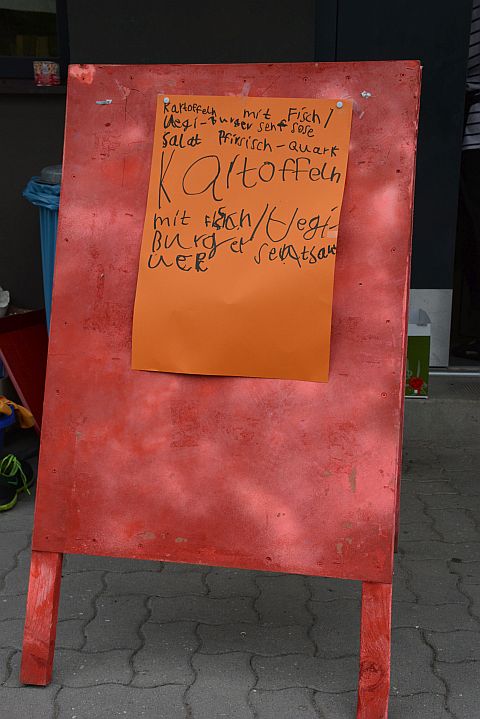 Kartoffeln mit Fisch/
Vegi-Burger senf sose
Salat Pfirsisch-Quark
Kartoffeln
mit Fisch/Vegi
Burger